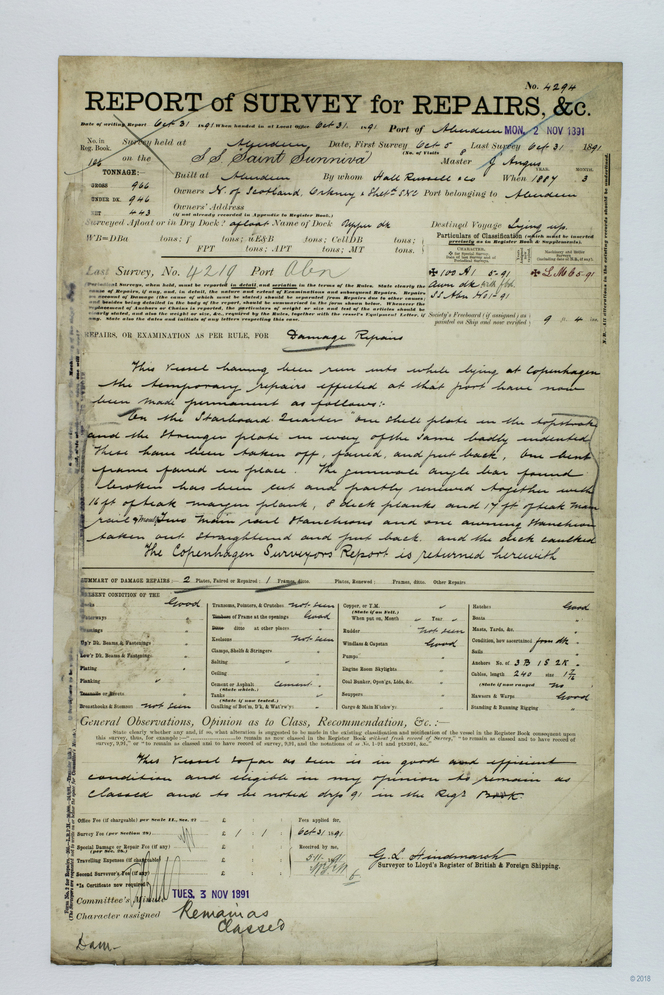 No. 4294
REPORT of SURVEY for REPAIRS, &c.
Date of writing Report Oct 31 1891 When handed in at Local Office Oct 31. 1891 Port of Aberdeen MON. 2 NOV 1891
No. in Reg. Book. Survey held at Aberdeen Date, First Survey Oct 5 Last Survey Oct 31 1891
(No. of Visits
166 on the S.S. "Saint Sunniva" Master J. Angus
TONNAGE:
GROSS 966 Built at Aberdeen By whom Hall Russell & Co When 1887 3
YEAR. MONTH.
UNDER DK. 946 Owners N. of Scotland, Orkney & Shetd S.N.C Port belonging to Aberdeen
NET 443 Owners' Address
(if not already recorded in Appendix to Register Book.)
Surveyed Afloat or in Dry Dock? afloat Name of Dock Upper dk Destined Voyage Laying up.
WB=DBa tons; f tons; uE&B tons; CellDB tons;
FPT tons; APT tons; MT tons.
Particulars of Classification (which must be inserted precisely as in Register Book & Supplements).
Last Survey, No. 4219 Port Abn
100 A1 5-91
L.M.C 5.91
Society's Freeboard (if assigned) as painted on Ship and now verified
REPAIRS, OR EXAMINATION AS PER RULE, FOR Damage Repairs
This Vessel having been run into while lying at Copenhagen
the temporary repairs effected at that port have now
been made permanent as follows:-
On the Starboard Quarter one shell plate in the topstrake
and the Stringer plate in way of the same badly indented
These have been taken off, faired, and put back, One bent
frame faired in place. The gunwale angle bar found
broken has been cut and partly renewed together with
16 ft of teak margin plank, 8 deck planks and 17 ft of teak main
rail Two main rail Stanchions and one awning Stanchion
taken out Straightened and put back. and the deck caulked
The Copenhagen Surveyors Report is returned herewith
SUMMARY OF DAMAGE REPAIRS:— 2 Plates, Faired or Repaired: 1 Frames, ditto. Plates, Renewed: Frames, ditto. Other Repairs.
PRESENT CONDITION OF THE
Decks Good
Transoms, Pointers, & Crutches not seen
Copper, or T.M. (State if on Felt.)
Hatches Good
Waterways "
Timbers of Frame at the openings Good
When put on, Month Year
Boats "
Ditto ditto at other places "
Rudder not seen
Masts, Yards, &c. "
Up'r Dk. Beams & Fastenings "
Keelsons not seen
Windlass & Capstan Good
Condition, how ascertained from dk
Low'r Dk. Beams & Fastenings
Clamps, Shelfs & Stringers
Pumps "
Sails "
Plating "
Salting
Engine Room Skylights "
Anchors No. of 3B 1S 2K
Planking
Ceiling
Coal Bunker, Open'gs, Lids, &c. "
Cables, length 240 size
Treenails or Rivets
Cement or Asphalt (State which.) cement
Scuppers "
(State if now ranged) no
Tanks (State if now tested.)
Hawsers & Warps Good
Breasthooks & Stemson not seen
Caulking of Bot'm, D'k, & Wat'rw'y:
Cargo & Main H'tchw'y: "
Standing & Running Rigging "
General Observations, Opinion as to Class, Recommendation, &c. :—
State clearly whether any and, if so, what alteration is suggested to be made in the existing classification and notification of the vessel in the Register Book consequent upon
This Vessel so far as seen is in good and efficient
condition and eligible in my opinion to remain as
classed and to be noted drp 91 in the Regr Book.
Office Fee (if chargeable) per Scale II., Sec. 27 £ Fees applied for,
Survey Fee (per Section 28) £ 1 : 1 : Oct 31 1891
Special Damage or Repair Fee (if any) (per Sec. 28.) £ Received by me,
Travelling Expenses (if chargeable) £
Second Surveyor's Fee (if any) £
G. L. Hindmarsh
Surveyor to Lloyd's Register of British & Foreign Shipping.
*Is Certificate now required?
Committee's Minute TUES. 3 NOV 1891
Character assigned Remain as
Classed
Dam-
© 2018